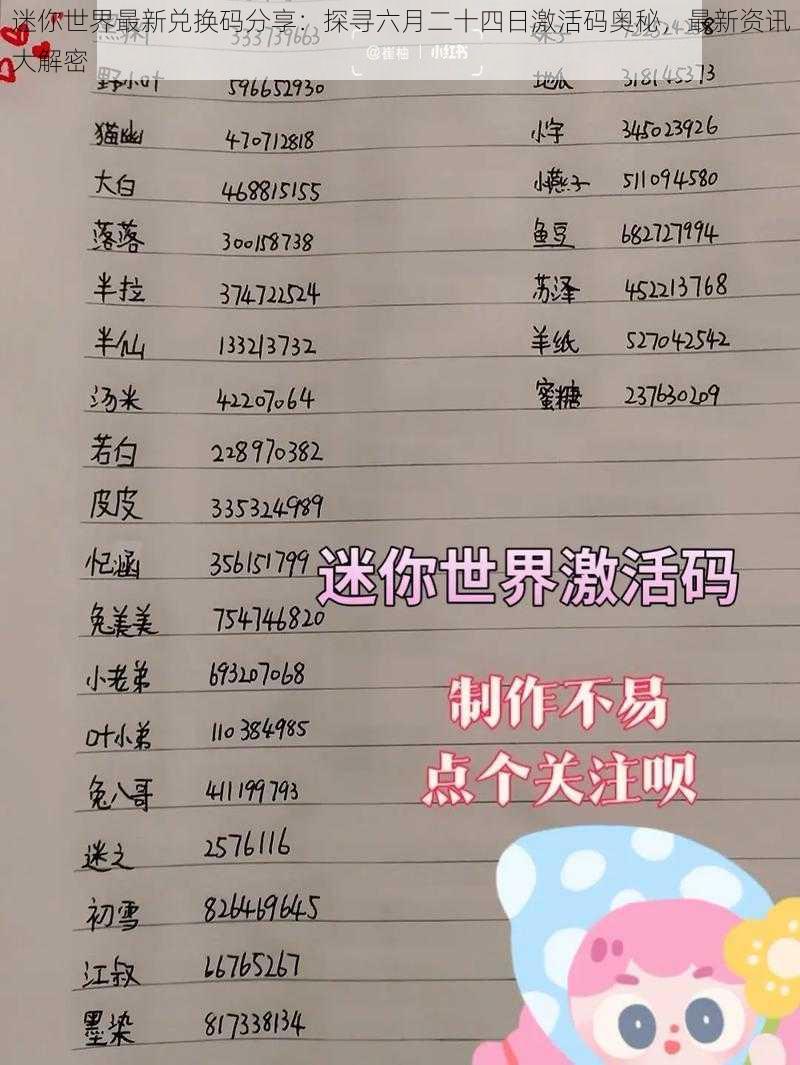 迷你世界最新兑换码分享：探寻六月二十四日激活码奥秘，最新资讯
大解密
@崔柚 | 小红书
野小叶 596652930
地瓜 318145373
猫幽 470712818
小字 345023926
大白 468815155
小燕子 511094580
落落 300158738
鱼豆 682727994
半拉 374722524
苏泽 452213768
半仙 133213732
羊纸 527042542
汤米 42207064
蜜糖 237630209
若白 228970382
皮皮 335324989
忆涵 356151799
迷你世界激活码
兔美美 754746820
小老弟 693207068
制作不易
叶小弟 110384985
点个关注呗
兔八哥 411199793
迷之 2576116
初雪 826469645
江叔 66765267
墨染 817338134